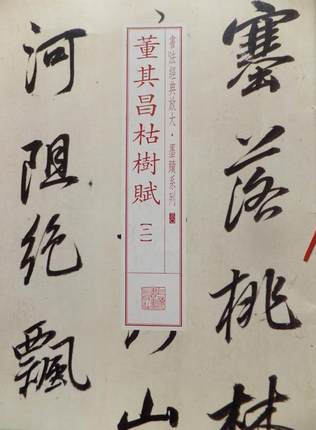 塞落桃林
書法經典放大・墨蹟系列
董其昌枯樹賦【二】
山
河阻绝飄